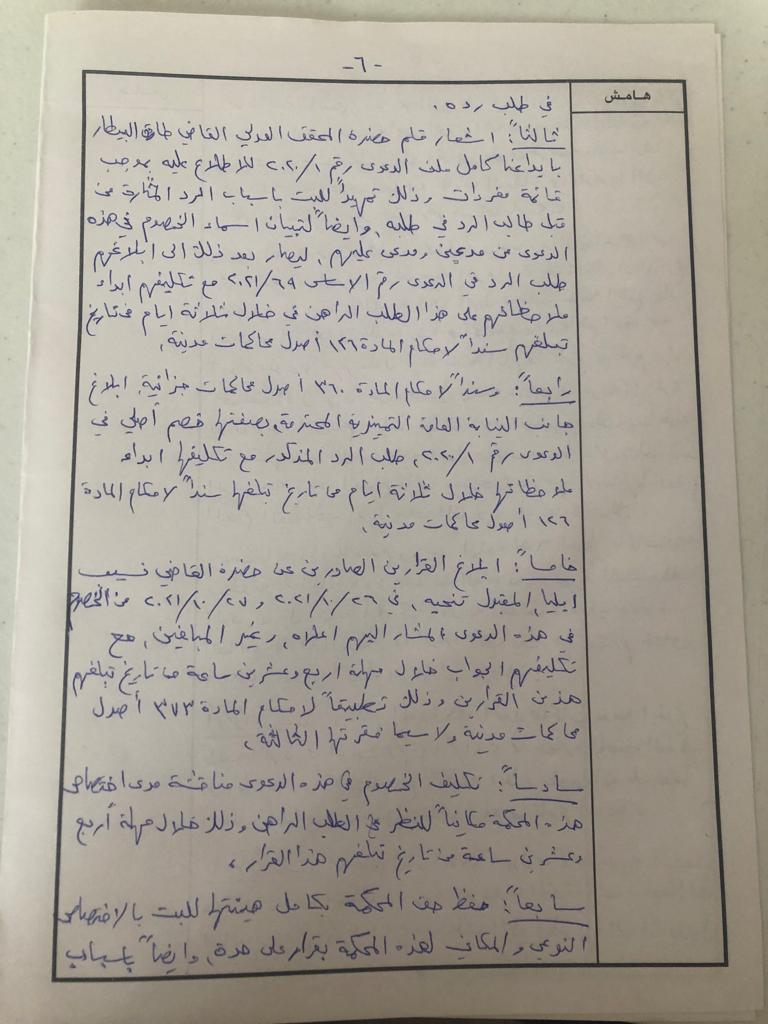 -٦-
هامش
في طلب رده.
ثالثاً: اشعار قلم حضرة المحقق العدلي القاضي طارق البيطار
بايداعنا كامل ملف الدعوى رقم ٢٠٢٠/١ للاطلاع عليه بموجب
قائمة مفردات وذلك تمهيداً للبت باسباب الرد المثارة من
قبل طالب الرد في طلبه، وايضاً لتبيان اسماء الخصوم في هذه
الدعوى من مدعين ومدعى عليهم، ليصار بعد ذلك الى ابلاغهم
طلب الرد في الدعوى رقم الاساس ٢٠٢١/٦٩ مع تكليفهم ابداء
ملاحظاتهم على هذا الطلب الراهن في خلال ثلاثة ايام من تاريخ
تبلغهم سنداً لاحكام المادة ١٢٦ أصول محاكمات مدنية.
رابعاً: وسنداً لاحكام المادة ٣٦٠ أصول محاكمات جزائية، ابلاغ
جانب النيابة العامة التمييزية المحترمة، بصفتها خصم أصلي في
الدعوى رقم ٢٠٢٠/١، طلب الرد المذكور مع تكليفها ابداء
ملاحظاتها خلال ثلاثة ايام من تاريخ تبلغها سنداً لاحكام المادة
١٢٦ أصول محاكمات مدنية.
خامساً: ابلاغ القرارين الصادرين عن حضرة القاضي نسيب
ايليا، المقبول تنحيه، في ٢٠٢١/١٠/٢٦ و ٢٠٢١/١٠/٢٧ من الخصوم
في هذه الدعوى المشار اليهم اعلاه، وغير المبلغين، مع
تكليفهم الجواب خلال مهلة اربع وعشرين ساعة من تاريخ تبلغهم
هذين القرارين وذلك تطبيقاً لاحكام المادة ٣٧٣ أصول
محاكمات مدنية ولا سيما فقرتها الثالثة.
سادساً: تكليف الخصوم في هذه الدعوى مناقشة مدى اختصاص
هذه المحكمة مكانياً للنظر في الطلب الراهن وذلك خلال مهلة أربع
وعشرين ساعة من تاريخ تبلغهم هذا القرار.
سابعاً: حفظ حق المحكمة بكامل هيئتها للبت بالاختصاص
النوعي والمكاني لهذه المحكمة بقرار على حدة، وايضاً باسباب